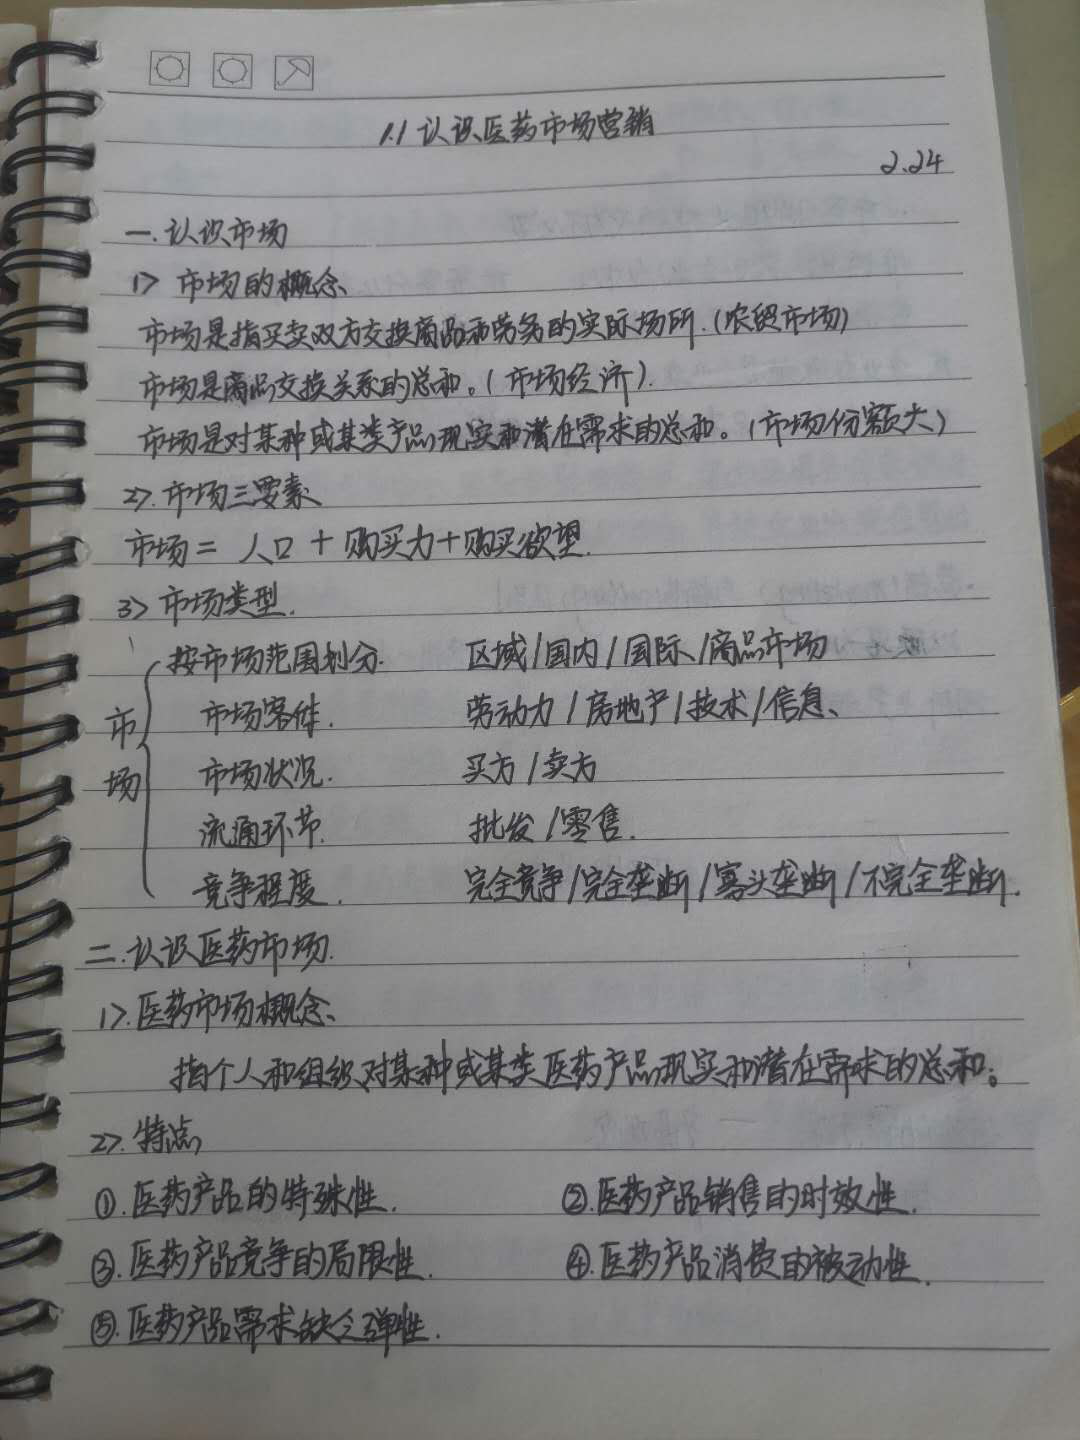 1.1 认识医药市场营销
2.24
一.认识市场
1> 市场的概念
市场是指买卖双方交换商品和劳务的实际场所.(农贸市场)
市场是商品交换关系的总和。(市场经济).
市场是对某种或某类产品现实和潜在需求的总和。(市场份额大)
2>.市场三要素
市场= 人口 + 购买力+购买欲望.
3> 市场类型.
按市场范围划分. 区域/国内/国际/商品市场
市场客体. 劳动力/房地产/技术/信息
市场
市场状况. 买方/卖方
流通环节. 批发/零售.
竞争程度. 完全竞争/完全垄断/寡头垄断/不完全垄断.
二.认识医药市场.
1>.医药市场概念
指个人和组织对某种或某类医药产品现实和潜在需求的总和。
2>.特点
①.医药产品的特殊性. ②.医药产品销售的时效性.
③.医药产品竞争的局限性. ④.医药产品消费的被动性.
⑤.医药产品需求缺乏弹性.